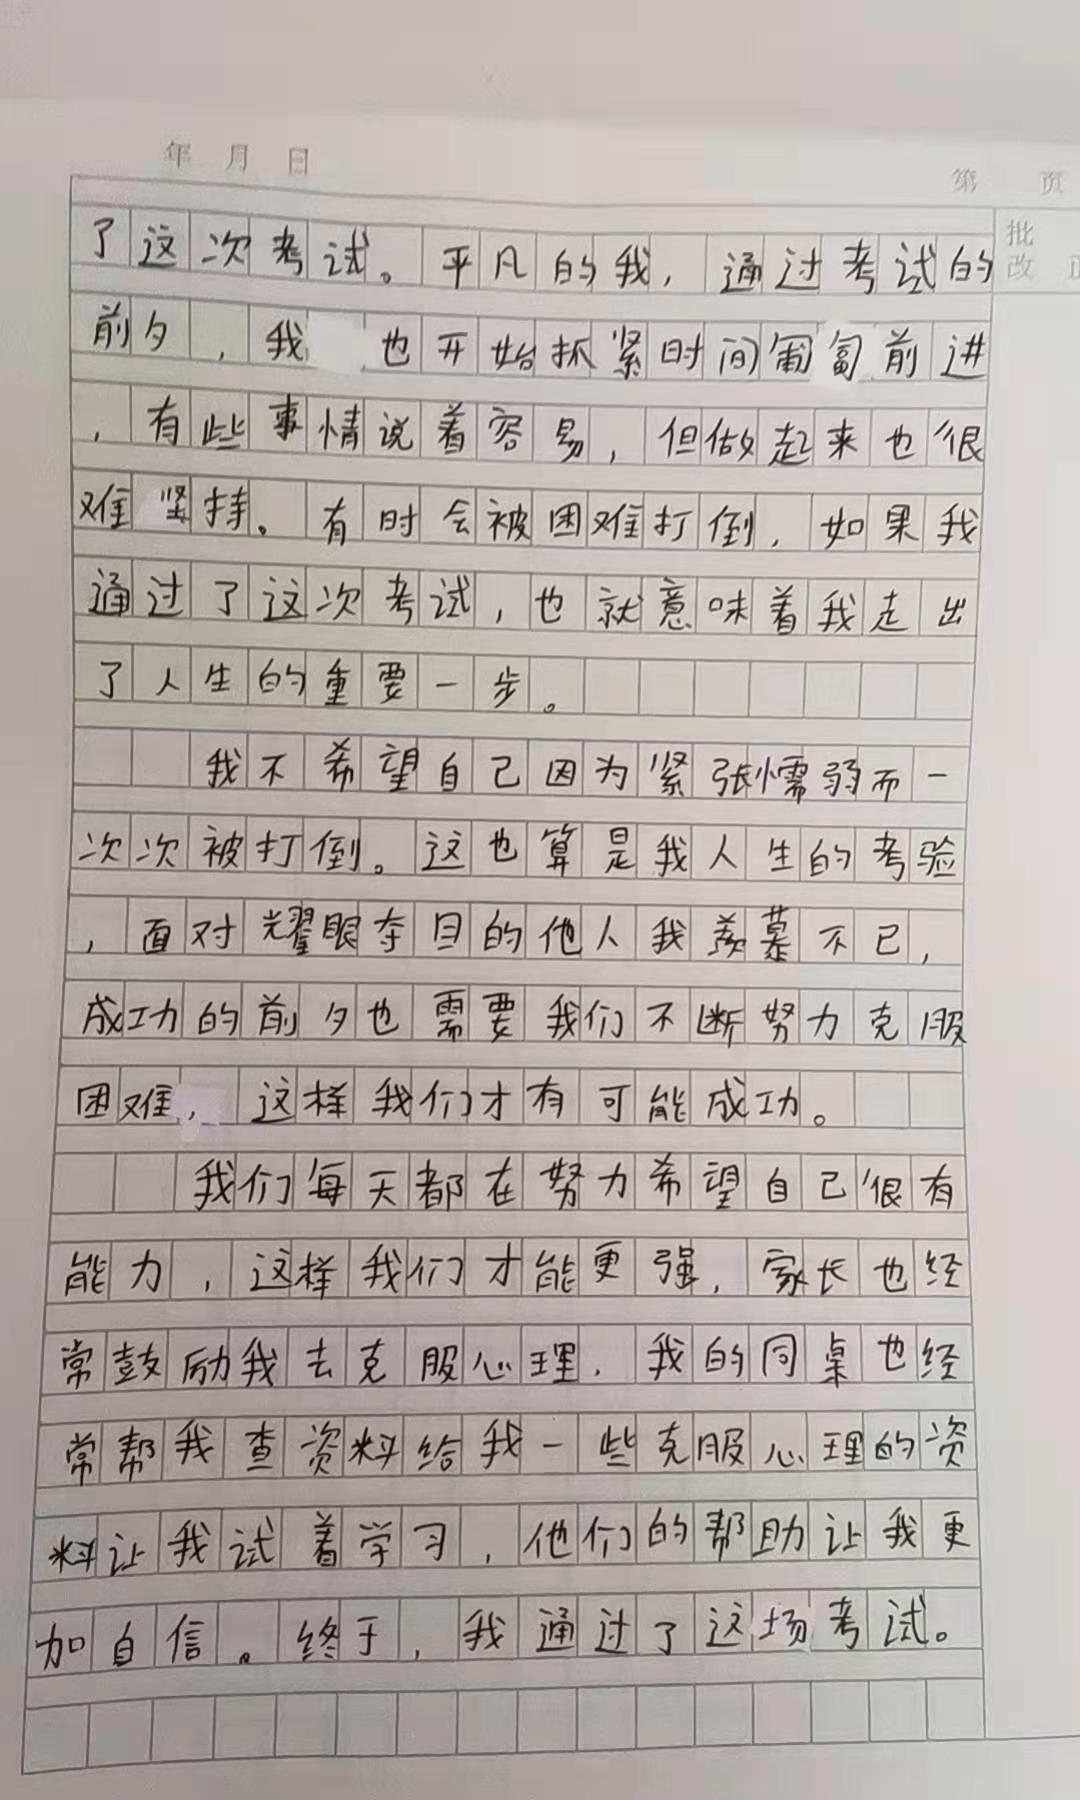 年 月 日
第 页
批
改 正
了这次考试。平凡的我，通过考试的
前夕，我也开始抓紧时间匍匐前进
，有些事情说着容易，但做起来也很
难坚持。有时会被困难打倒，如果我
通过了这次考试，也就意味着我走出
了人生的重要一步。
我不希望自己因为紧张懦弱而一
次次被打倒。这也算是我人生的考验
，面对耀眼夺目的他人我羡慕不已，
成功的前夕也需要我们不断努力克服
困难，这样我们才有可能成功。
我们每天都在努力希望自己很有
能力，这样我们才能更强，家长也经
常鼓励我去克服心理，我的同桌也经
常帮我查资料给我一些克服心理的资
料让我试着学习，他们的帮助让我更
加自信。终于，我通过了这场考试。